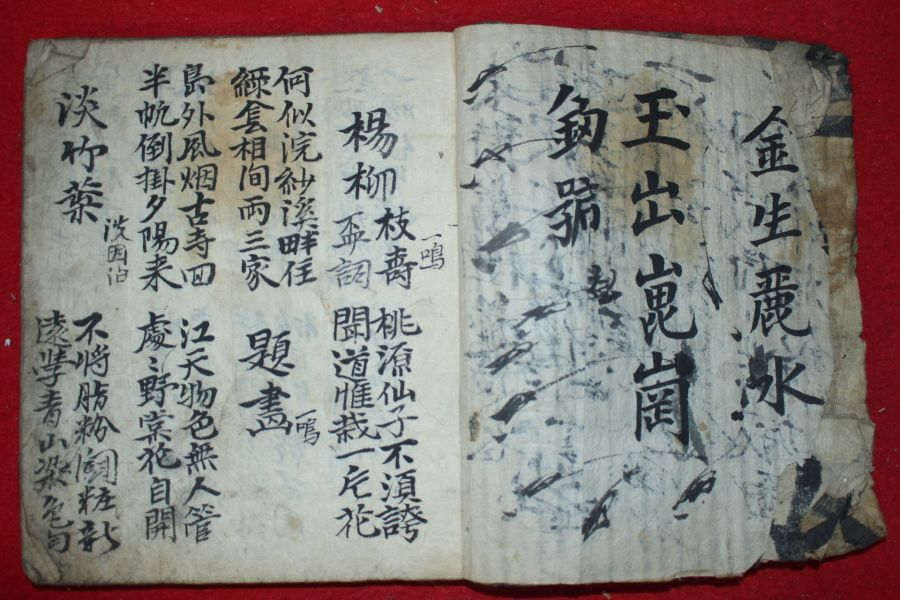 金生麗水
玉出崑崗
號
楊柳枝壽
盃詞
一鳴
桃源仙子不須誇
聞道惟栽一片花
何似浣紗溪畔住
相間兩三家
題畫
一鳴
島外風烟古寺回
半帆倒掛夕陽来
江天物色無人管
處〻野棠花自開
淡竹葉
不將脂粉鬪粧新
遠學青山染色勻